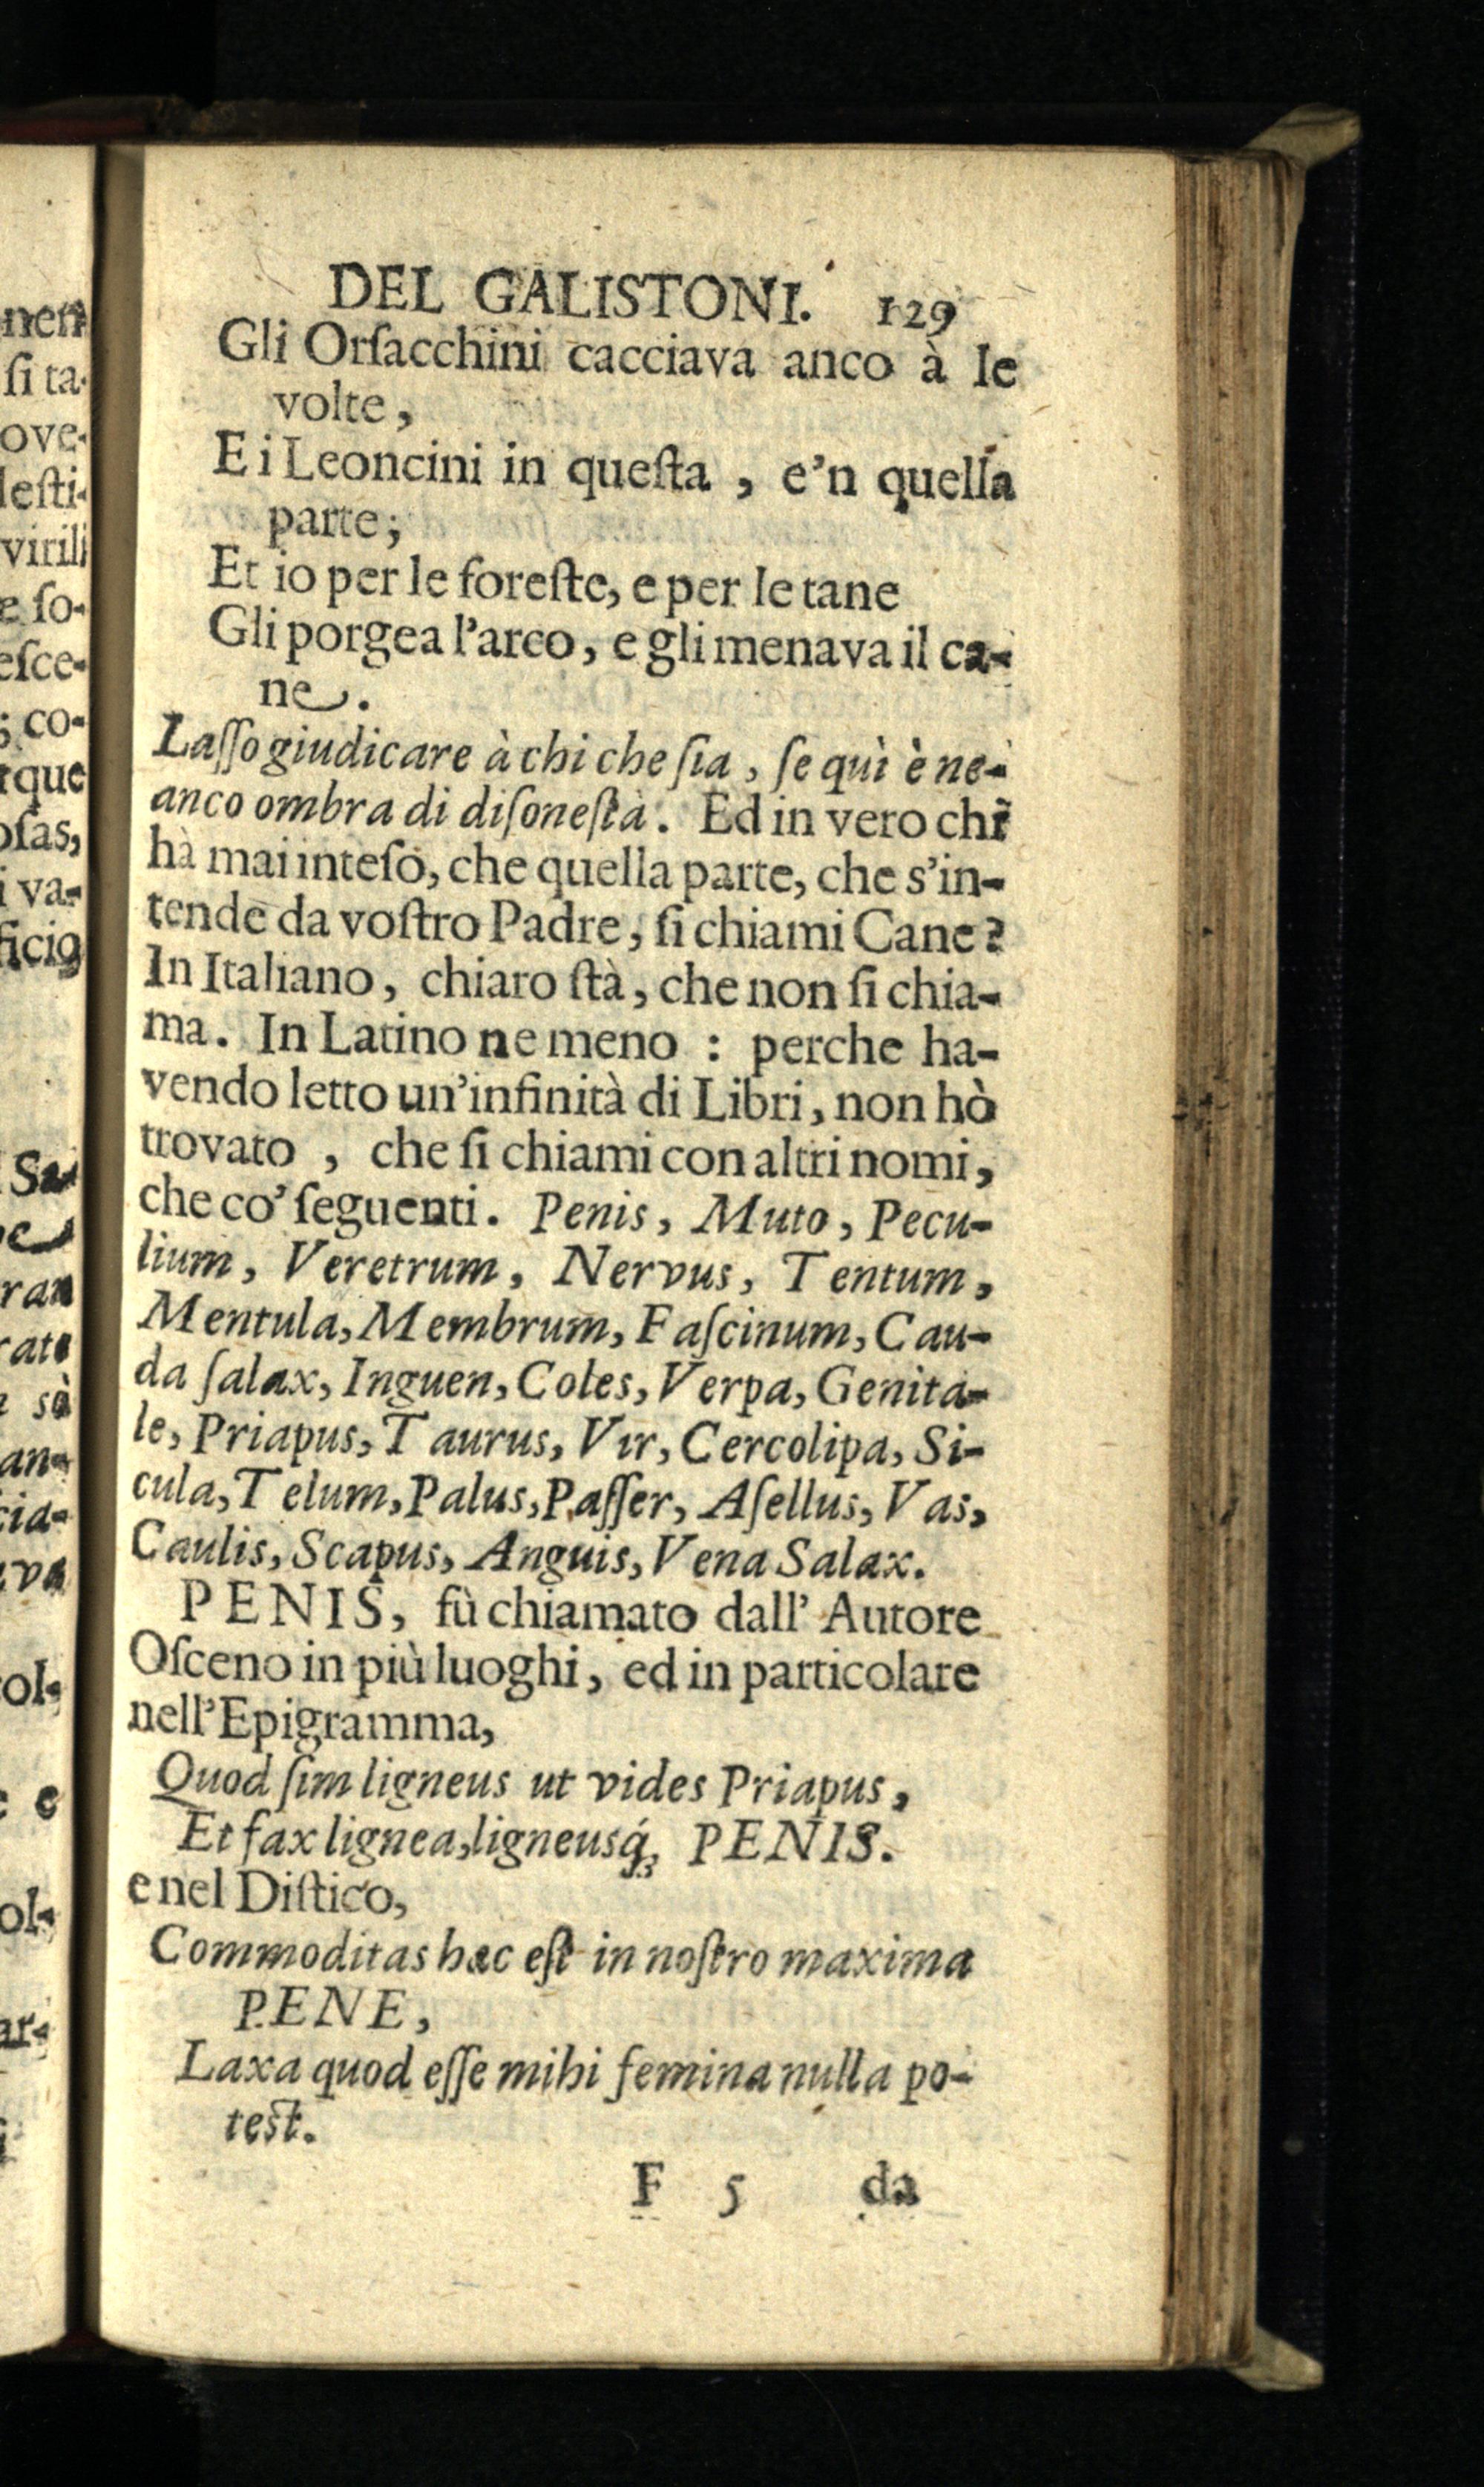 DEL GALISTONI. 129
Gli Orſacchini cacciava anco à le
volte,
E i Leoncini in queſta, e'n quella
parte;
Et io per le foreſte, e per le tane
Gli porgea l'arco, e gli menava il ca-
ne.
Laſſo giudicare à chi che ſia, ſe quì è ne-
anco ombra di diſoneſtà. Ed in vero chi
hà mai inteſo, che quella parte, che s'in-
tende da voſtro Padre, ſi chiami Cane?
In Italiano, chiaro ſtà, che non ſi chia-
ma. In Latino ne meno : perche ha-
vendo letto un'infinità di Libri, non hò
trovato, che ſi chiami con altri nomi,
che co' ſeguenti. Penis, Muto, Pecu-
lium, Veretrum, Nervus, Tentum,
Mentula, Membrum, Faſcinum, Cau-
da ſalax, Inguen, Coles, Verpa, Genita-
le, Priapus, Taurus, Vir, Cercolipa, Si-
cula, Telum, Palus, Paſſer, Aſellus, Vas,
Caulis, Scapus, Anguis, Vena Salax.
PENIS, fù chiamato dall' Autore
Oſceno in più luoghi, ed in particolare
nell'Epigramma,
Quod ſim ligneus ut vides Priapus,
Et fax lignea, ligneusq́; PENIS.
e nel Diſtico,
Commoditas hæc eſt in noſtro maxima
PENE,
Laxa quod eſſe mihi femina nulla po-
test.
F 5 da